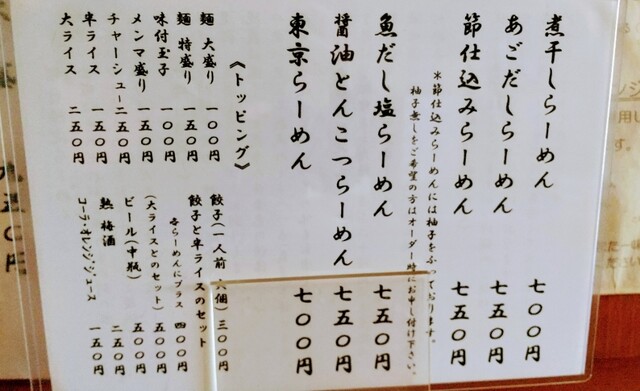 煮干しらーめん 七〇〇円
あごだしらーめん 七五〇円
節仕込みらーめん 七五〇円
＊節仕込みらーめんには柚子をふっております。
柚子無しをご希望の方はオーダー時にお申し付け下さい。
魚だし塩らーめん 七五〇円
醤油とんこつらーめん 七五〇円
東京らーめん 七〇〇円
《トッピング》
麺 大盛り 一〇〇円
麺 特盛り 一五〇円
味付玉子 一〇〇円
メンマ盛り 一五〇円
チャーシュー 二五〇円
半ライス 一五〇円
大ライス 二五〇円
餃子(一人前 六個) 三〇〇円
餃子と半ライスのセット
各らーめんにプラス 四〇〇円
(大ライスとのセット) 五〇〇円
ビール(中瓶) 五〇〇円
熟 梅酒 二五〇円
コーラ・オレンジジュース 一五〇円
五〇円